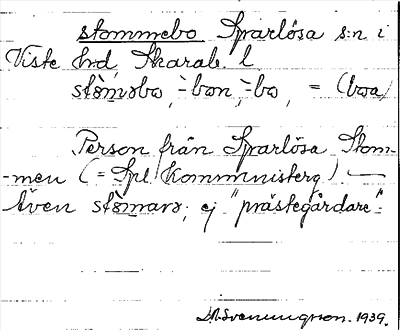 stommebo Sparlösa s:n i
Viste hrd, Skarab. l
stòməbo, -bon, -bo, = (boa)
Person från Sparlösa Stom-
-men (= Spl kommnisterg) —
Även stòmarə; ej "prästegårdare".
Svenungson. 1939.